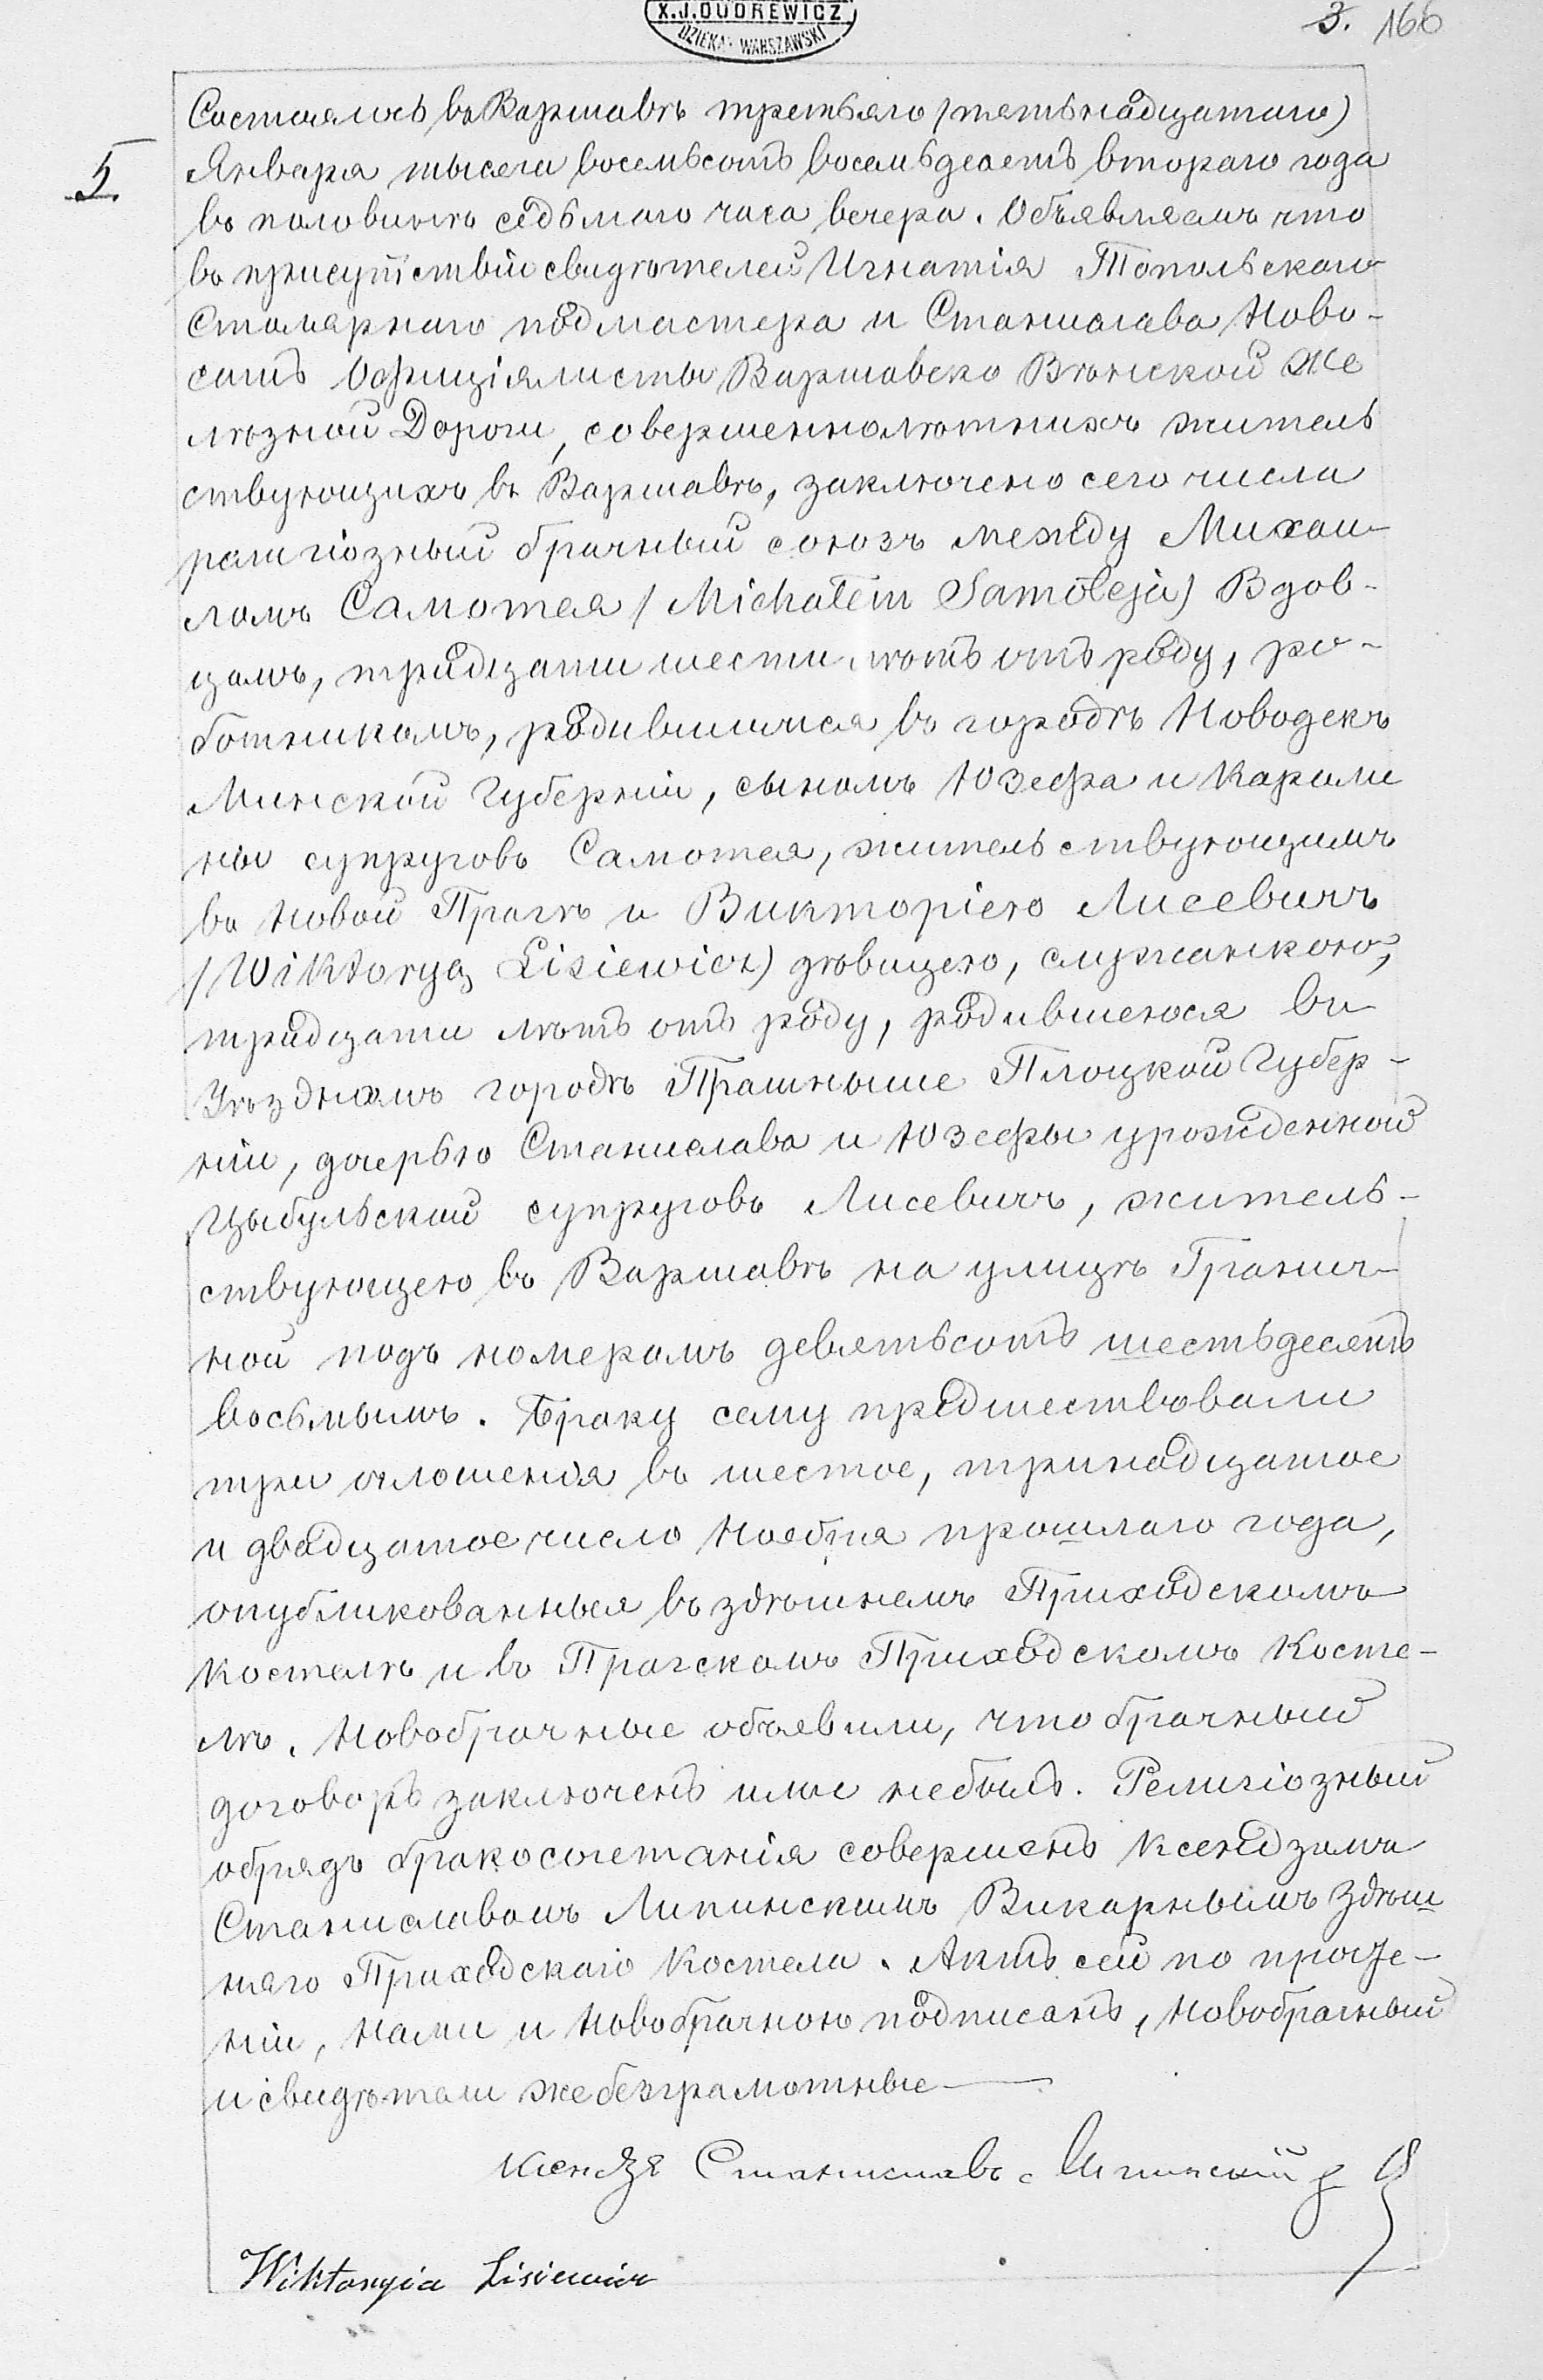 X.J.DUDREWICZ
DZIEKAN WARSZAWSKI
3. 166
5.
Состоялось въ Варшавѣ третьяго (пятьнадцатаго)
Января тысяча восемьсотъ восемьдесятъ втораго года
въ половинѣ седьмаго часа вечера. Объявляемъ что
въ присутствіи свидѣтелей Игнатія Топольскаго
Столярнаго подмастера и Станислава Ново-
сатъ Оффиціялисты Варшавско Вѣнской Же
лѣзной Дороги, совершеннолѣтнихъ житель
ствующихъ въ Варшавѣ, заключено сего числа
религіозный брачный союзъ между Михаи-
ломъ Самотея (Michałem Samoteja) Вдов-
цомъ, тридцати шести лѣтъ отъ роду, ро-
ботникомъ, родившимся въ городѣ Новодекъ
Минской Губерніи, сыномъ Юзефа и Кароли
ны супруговъ Самотея, жительствующимъ
въ Новой Прагѣ и Викторіею Лисевичъ
(Wiktoryą Lisiewicz) дѣвицею, служанкою,
тридцати лѣтъ отъ роду, родившеюся въ
Уѣздномъ городѣ Прашныше Плоцкой Губер-
ніи, дочерью Станислава и Юзефы урожденной
Цыбульской супруговъ Лисевичъ, житель-
ствующею въ Варшавѣ на улицѣ Гранич-
ной подъ номеромъ девятьсотъ шестьдесятъ
восьмымъ. Браку сему предшествовали
три оглошенія въ шестое, тринадцатое
и двадцатое число Ноября прошлаго года,
опубликованныя въ здѣшнемъ Приходскомъ
Костелѣ и въ Прагскомъ Приходскомъ Косте-
лѣ. Новобрачные объявили, что брачный
договоръ заключенъ ими небылъ. Религіозный
обрядъ бракосочетанія совершенъ Ксендзомъ
Станиславомъ Липинскимъ Викарнымъ Здѣш
няго Приходскаго Костела. Актъ сей по проче-
ніи, Нами и Новобрачною подписанъ, Новобрачный
и свидѣтели же безграмотные
Ксендзъ Станиславъ Липинскій
Wiktoryia Lisiewicz